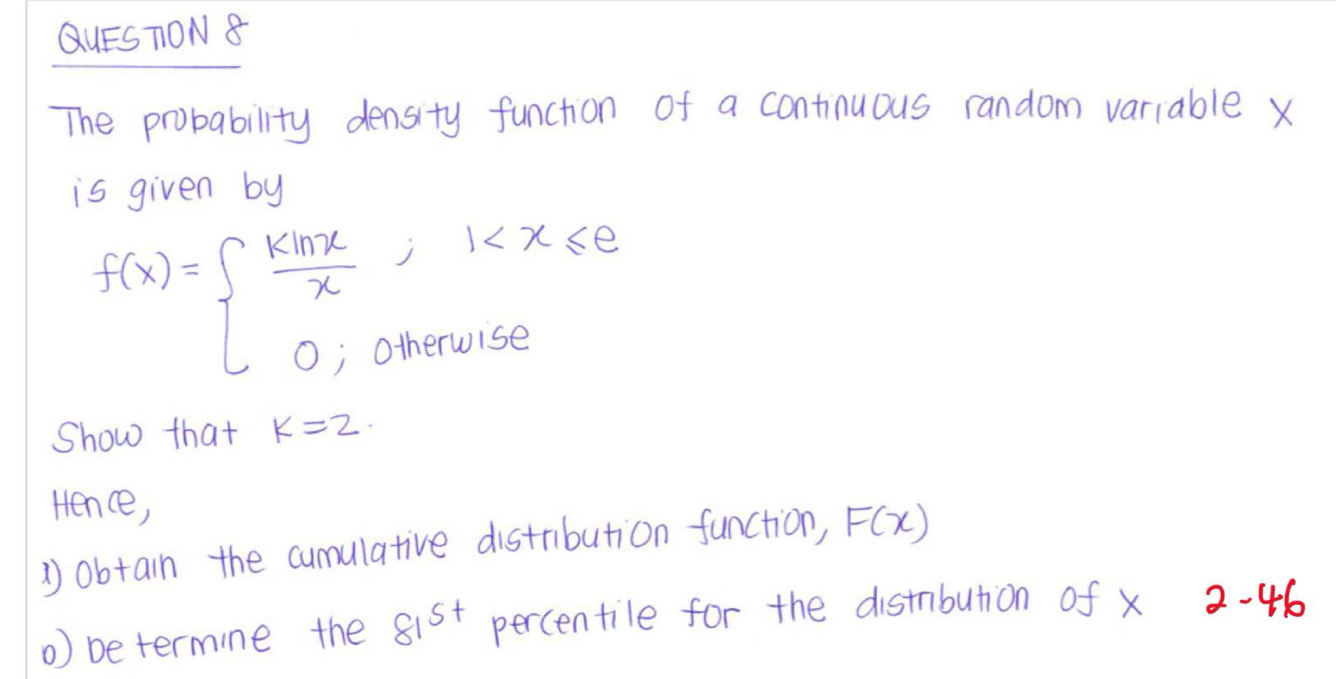 QUESTION 8
The probability density function of a continuous random variable X
is given by
f(x) = { Klnx / x ; 1 < x ⩽ e
0 ; otherwise
Show that K = 2.
Hence,
1) Obtain the cumulative distribution function, F(x)
0) Determine the 81st percentile for the distribution of X 2-46